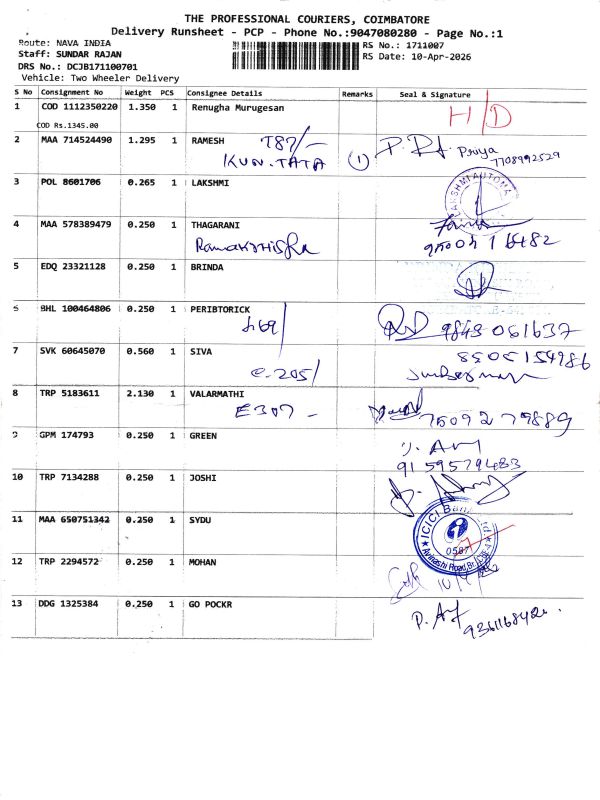 THE PROFESSIONAL COURIERS, COIMBATORE
Delivery Runsheet - PCP - Phone No.:9047080280 - Page No.:1
Route: NAVA INDIA
RS No.: 1711007
Staff: SUNDAR RAJAN
RS Date: 10-Apr-2026
DRS No.: DCJB171100701
Vehicle: Two Wheeler Delivery
S No Consignment No Weight PCS Consignee Details Remarks Seal & Signature
1 COD 1112350220 1.350 1 Renugha Murugesan H/D
COD Rs.1345.00
2 MAA 714524490 1.295 1 RAMESH T87/-
KUN.TATA (1) Priya
7708992529
3 POL 8601706 0.265 1 LAKSHMI
LAKSHMI AUTOMA
4 MAA 578389479 0.250 1 THAGARANI
5 EDQ 23321128 0.250 1 BRINDA
6 BHL 100464806 0.250 1 PERIBTORICK
9843 061637
7 SVK 60645070 0.560 1 SIVA
8505154986
C-205/
8 TRP 5183611 2.130 1 VALARMATHI
E307 -
75092 79889
9 GPM 174793 0.250 1 GREEN
91 59579483
10 TRP 7134288 0.250 1 JOSHI
11 MAA 650751342 0.250 1 SYDU
ICICI Bank Ltd
Avinashi Road Br.
12 TRP 2294572 0.250 1 MOHAN
13 DDG 1325384 0.250 1 GO POCKR